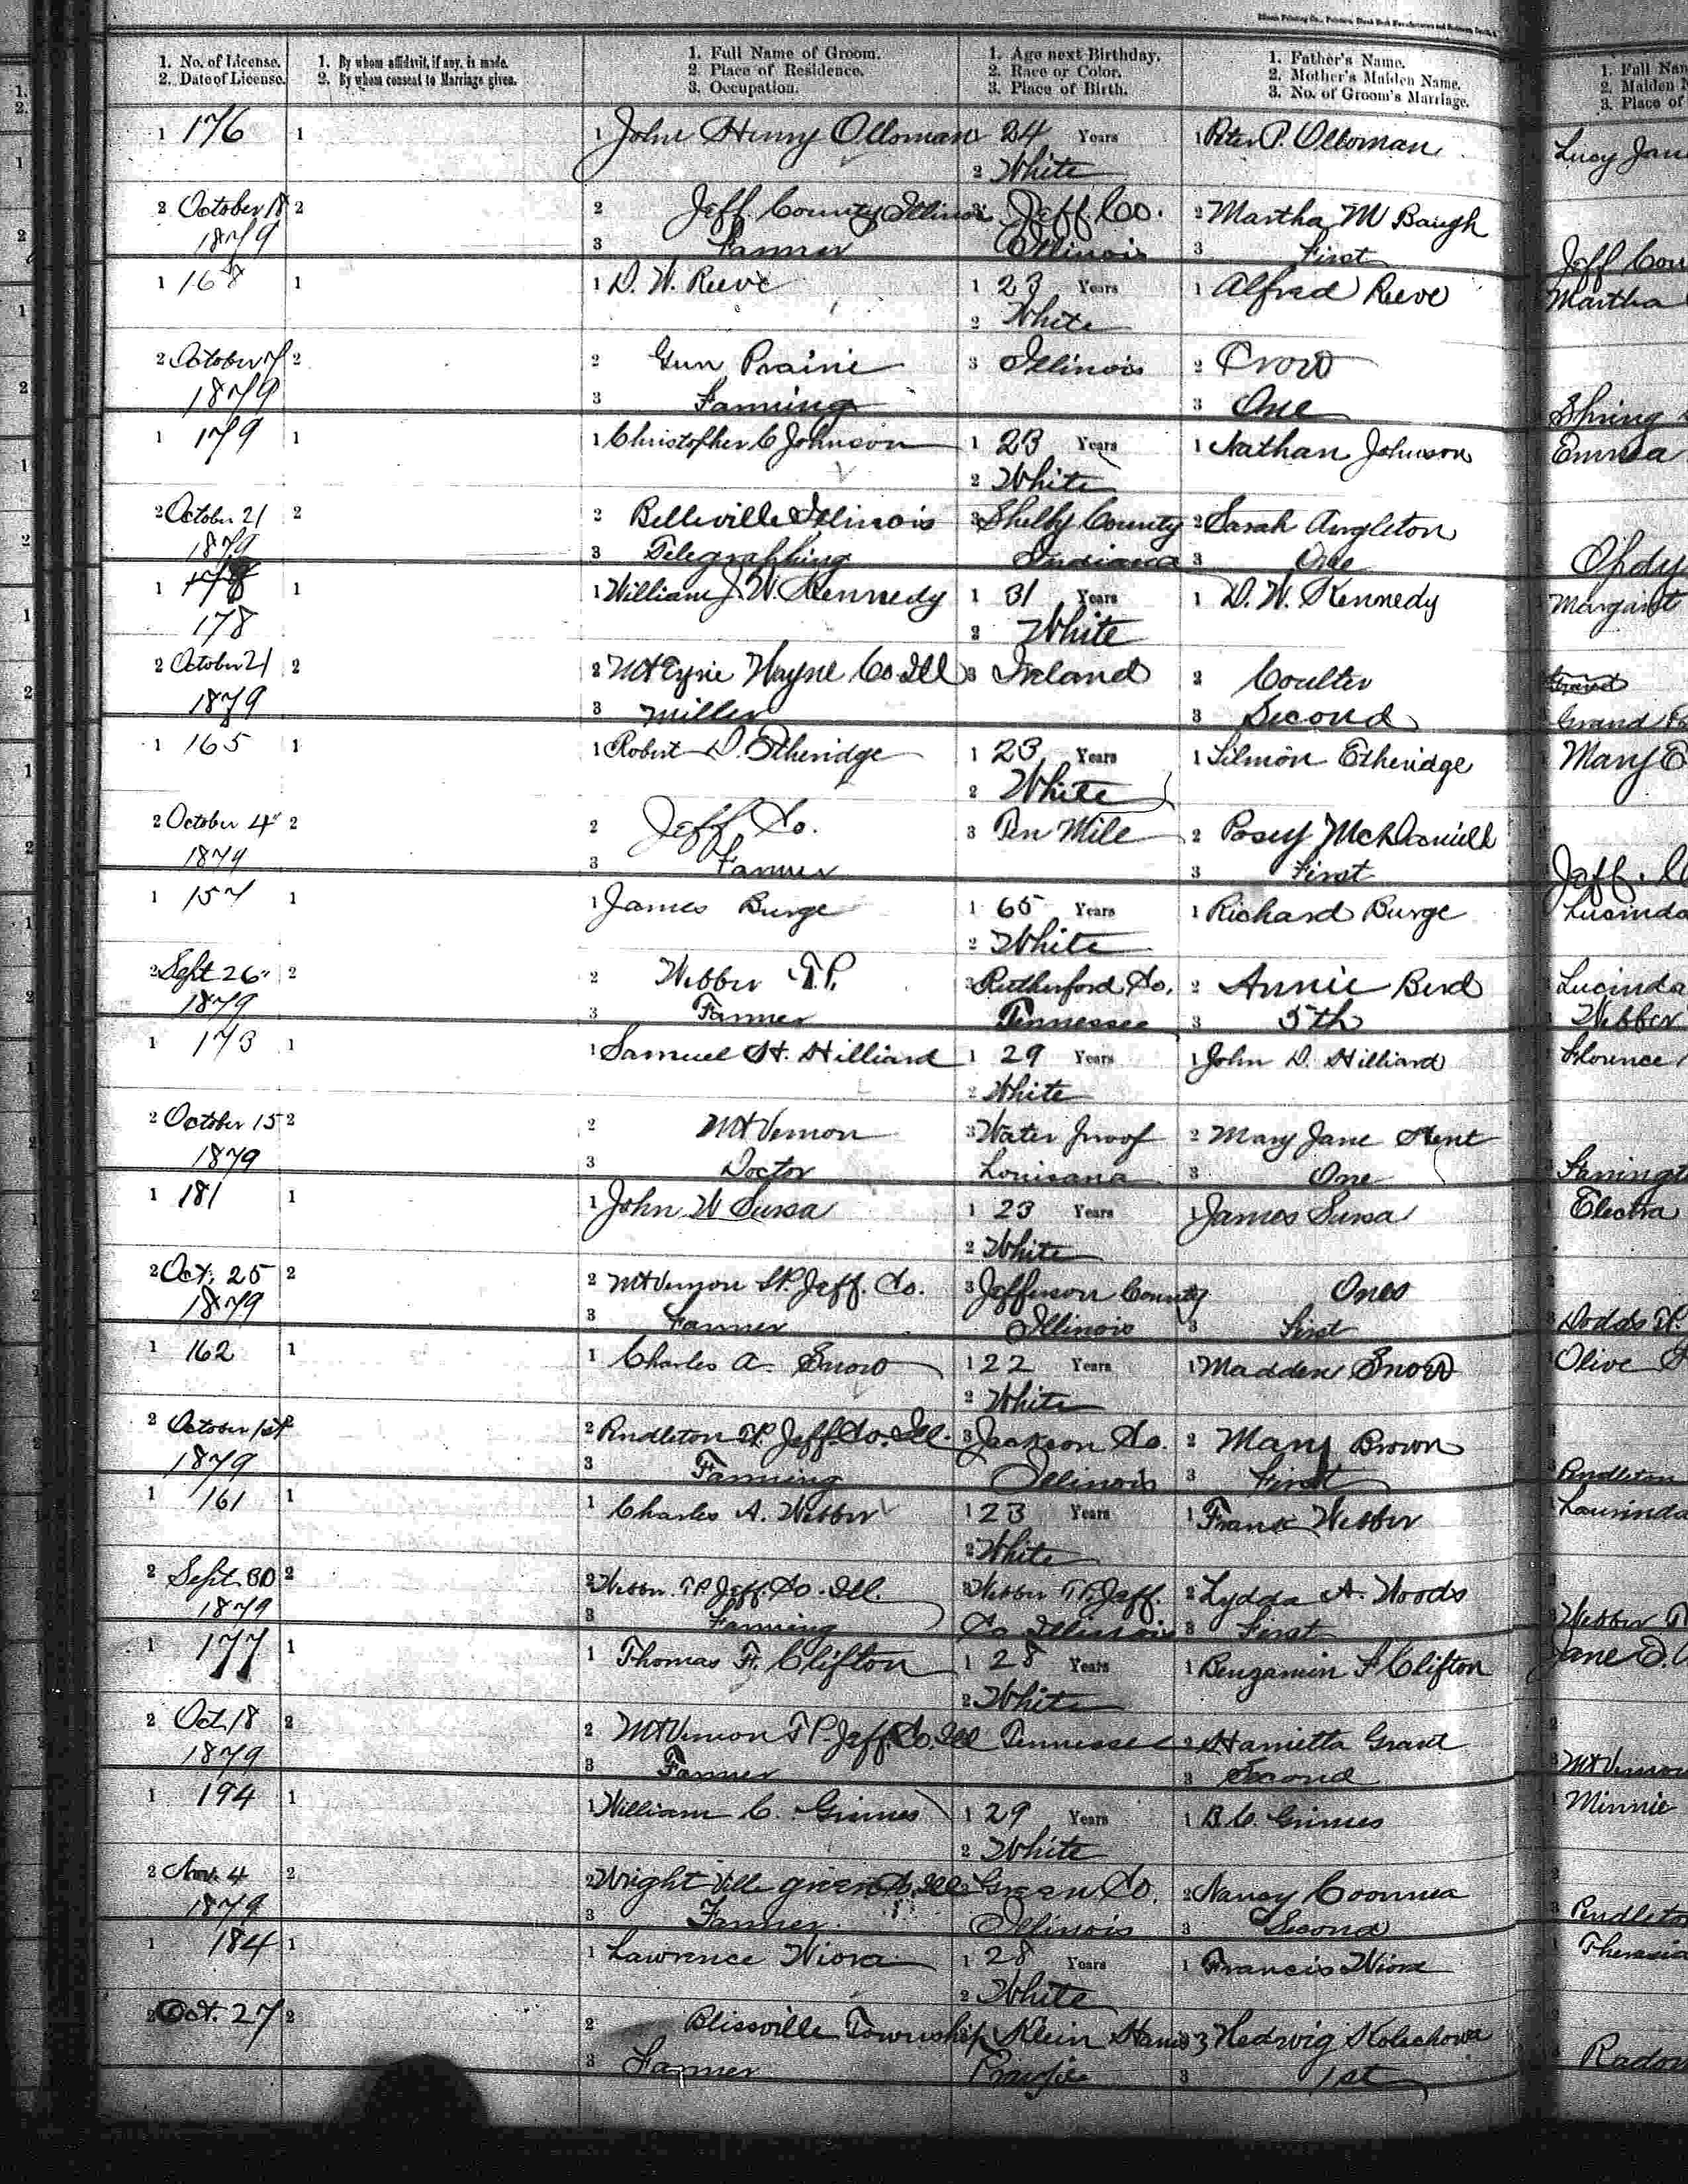 1. No. of License.
2. Date of License.
1. By whom affidavit, if any, is made.
2. By whom consent to Marriage given.
1. Full Name of Groom.
2. Place of Residence.
3. Occupation.
1. Age next Birthday.
2. Race or Color.
3. Place of Birth.
1. Father's Name.
2. Mother's Maiden Name.
3. No. of Groom's Marriage.
1. Full Nam
2. Maiden N
3. Place of
1 176 1 1 John Henry Olloman 1 24 Years 1 Peter P. Olloman Lucy Jane
2 White
2 October 18 2 2 Jeff. County Illinois 3 Jeff. Co. 2 Martha M Baugh
1879 3 Farmer Illinois 3 First Jeff Cou
1 168 1 1 D. W. Reeve 1 23 Years 1 Alfred Reeve Martha
2 White
2 October 7 2 2 Gun Prairie 3 Illinois 2 Crow
1879 3 Farming 3 One Spring
1 179 1 1 Christopher C Johnson 1 23 Years 1 Nathan Johnson Emma
2 White
2 October 21 2 2 Belleville Illinois 3 Shelby County 2 Sarah Angleton
1879 3 Telegraphing Indiana 3 One Opdy
1 1 1 William J. W. Kennedy 1 31 Years 1 D. W. Kennedy Margaret
178 2 White
2 October 21 2 2 Mt Eyrie Wayne Co. Ill 3 Ireland 2 Coulter
1879 3 Miller 3 Second Grand
1 165 1 1 Robert D. Etheridge 1 23 Years 1 Silmon Etheridge Mary E
2 White
2 October 4" 2 2 Jeff. Co. 3 Ten Mile 2 Posey McDaniell
1879 3 Farmer 3 First Jeff.
1 157 1 1 James Burge 1 65 Years 1 Richard Burge Lucinda
2 White
2 Sept 26" 2 2 Webber T.P. 3 Rutherford Co. 2 Annie Bird Lucinda
1879 3 Farmer Tennessee 3 5th Webber
1 173 1 1 Samuel H. Hilliard 1 29 Years 1 John D. Hilliard Florence
2 White
2 October 15 2 2 Mt Vernon 3 Water Proof 2 Mary Jane Hunt
1879 3 Doctor Louisana 3 One Farringt
1 181 1 1 John W Sursa 1 23 Years 1 James Sursa Electra
2 White
2 Oct. 25 2 2 Mt Vernon T.P. Jeff. Co. 3 Jefferson County Ones
1879 3 Farmer Illinois 3 First 3 Dodds T.P.
1 162 1 1 Charles A. Snow 1 22 Years 1 Madden Snow Olive
2 White
2 October 1st 2 2 Pendleton T.P. Jeff. Co. Ill. 3 Jackson Co. 2 Mary Brown
1879 3 Farming Illinois 3 First 3 Pendleton
1 161 1 1 Charles A. Webber 1 23 Years 1 Frank Webber Laurinda
2 White
2 Sept. 30 2 2 Webber T.P. Jeff. Co. Ill. 3 Webber T.P. Jeff. 2 Lydda A. Woods
1879 3 Farming Co Illinois 3 First 3 Webber T
1 177 1 1 Thomas F. Clifton 1 28 Years 1 Benjamin F Clifton Jane
2 White
2 Oct 18 2 2 Mt Vernon T.P. Jeff Co. Ill Tennessee 2 Harrietta Grant
1879 3 Farmer 3 Second 3 Mt Vernon
1 194 1 1 William C. Grimes 1 29 Years 1 B. C. Grimes Minnie
2 White
2 Nov. 4 2 2 Wright Ville Green Co. Ill 3 Green Co. 2 Nancy
1879 3 Farmer Illinois 3 Second 3 Pendleton
1 184 1 1 Lawrence Wiora 1 28 Years 1 Francis Wiora Theresia
2 White
2 Oct. 27 2 2 Blissville Township Klein 2 Hedwig
3 Farmer 3 1st Radom